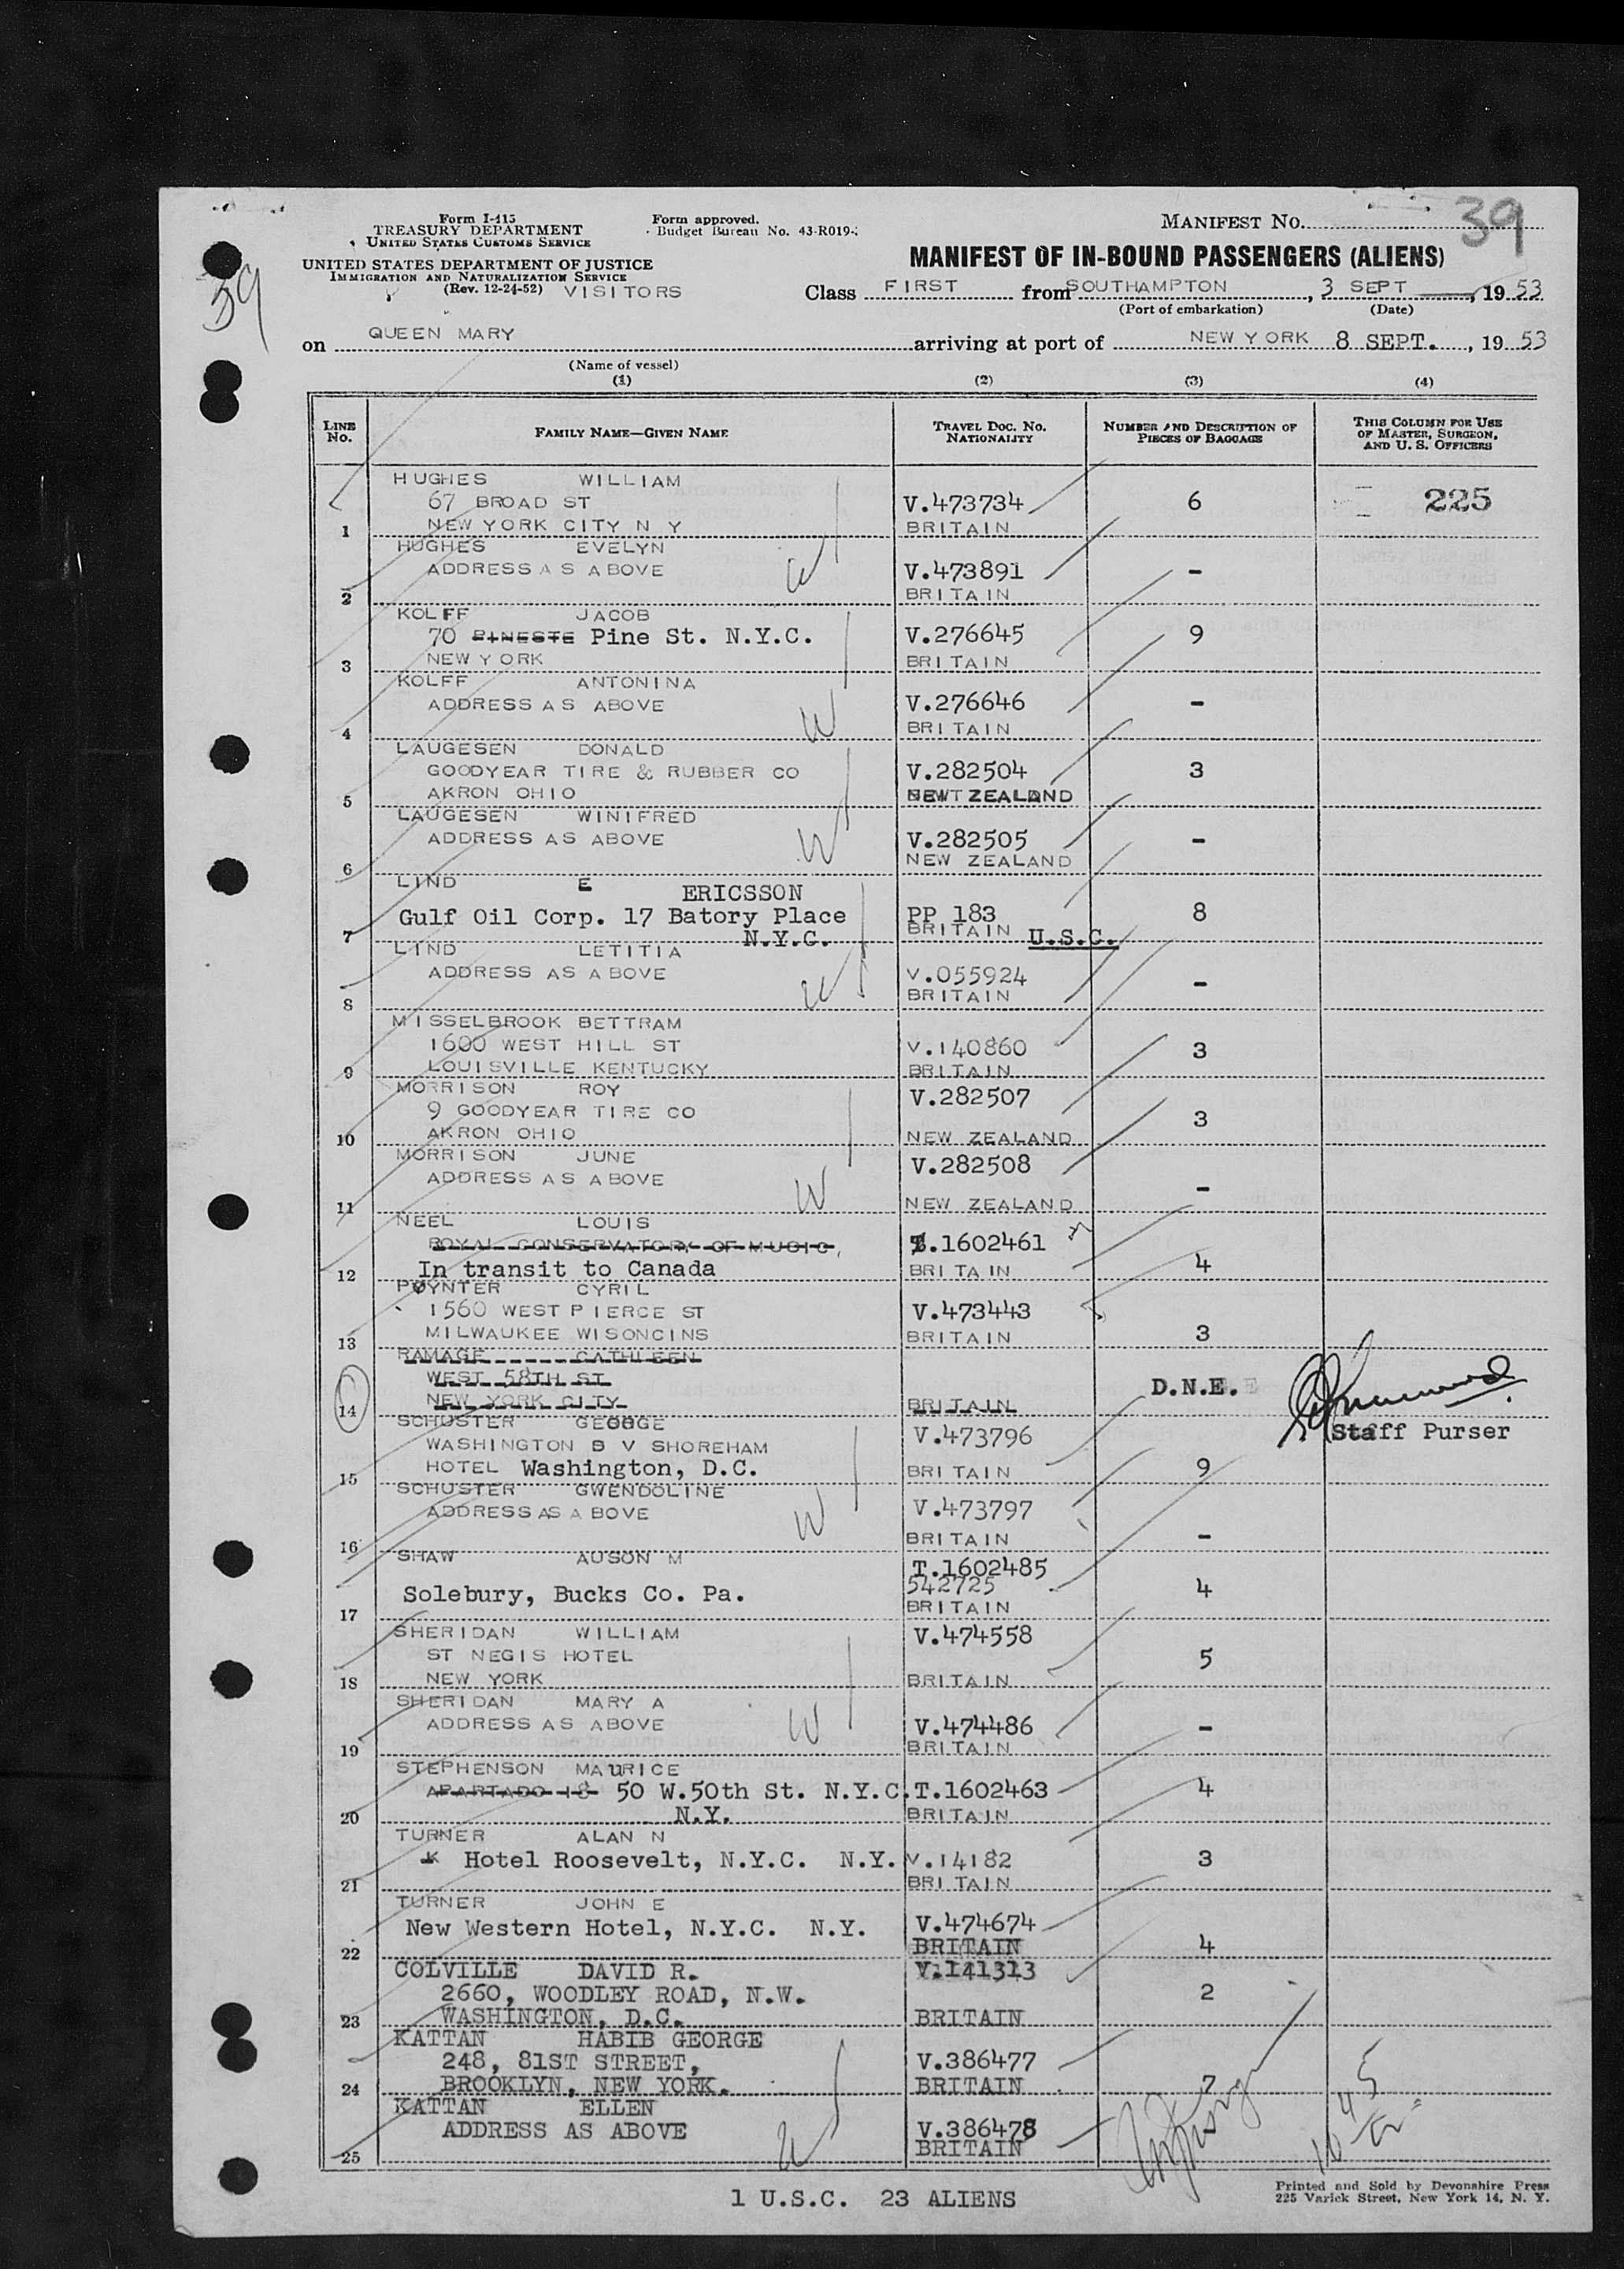 Form I-415
TREASURY DEPARTMENT
UNITED STATES CUSTOMS SERVICE
UNITED STATES DEPARTMENT OF JUSTICE
IMMIGRATION AND NATURALIZATION SERVICE
(Rev. 12-24-52) VISITORS
Form approved.
Budget Bureau No. 43-R019-
MANIFEST No. 39
39
MANIFEST OF IN-BOUND PASSENGERS (ALIENS)
Class FIRST from SOUTHAMPTON, 3 SEPT, 19 53
(Port of embarkation) (Date)
on QUEEN MARY arriving at port of NEW YORK 8 SEPT., 19 53
(Name of vessel)
(1) (2) (3) (4)
LINE No.
FAMILY NAME—GIVEN NAME
TRAVEL DOC. NO. NATIONALITY
NUMBER AND DESCRIPTION OF PIECES OF BAGGAGE
THIS COLUMN FOR USE OF MASTER, SURGEON, AND U. S. OFFICERS
HUGHES WILLIAM
67 BROAD ST V.473734 6 225
1 NEW YORK CITY N Y BRITAIN
HUGHES EVELYN
ADDRESS AS ABOVE V.473891 -
2 BRITAIN
KOLFF JACOB
70 PINESTE Pine St. N.Y.C. V.276645 9
3 NEW YORK BRITAIN
KOLFF ANTONINA
ADDRESS AS ABOVE V.276646 -
4 BRITAIN
LAUGESEN DONALD
GOODYEAR TIRE & RUBBER CO V.282504 3
5 AKRON OHIO NEW ZEALAND
LAUGESEN WINIFRED
ADDRESS AS ABOVE V.282505 -
6 NEW ZEALAND
LIND E ERICSSON
Gulf Oil Corp. 17 Batory Place PP 183 8
7 N.Y.C. BRITAIN U.S.C.
LIND LETITIA
ADDRESS AS ABOVE V.055924 -
8 BRITAIN
MISSELBROOK BETTRAM
1600 WEST HILL ST V.140860 3
9 LOUISVILLE KENTUCKY BRITAIN
MORRISON ROY V.282507
9 GOODYEAR TIRE CO 3
10 AKRON OHIO NEW ZEALAND
MORRISON JUNE V.282508
ADDRESS AS ABOVE -
11 NEW ZEALAND
NEEL LOUIS
ROYAL CONSERVATORY OF MUSIC, T.1602461
12 In transit to Canada BRITAIN 4
POYNTER CYRIL
1560 WEST PIERCE ST V.473443
13 MILWAUKEE WISONCINS BRITAIN 3
RAMAGE CATHLEEN
WEST 58TH ST D.N.E.
14 NEW YORK CITY BRITAIN
Staff Purser
SCHUSTER GEORGE V.473796
WASHINGTON B V SHOREHAM
15 HOTEL Washington, D.C. BRITAIN 9
SCHUSTER GWENDOLINE
ADDRESS AS ABOVE V.473797
16 BRITAIN -
SHAW AUSON M T.1602485
542725
Solebury, Bucks Co. Pa. 4
17 BRITAIN
SHERIDAN WILLIAM V.474558
ST NEGIS HOTEL 5
18 NEW YORK BRITAIN
SHERIDAN MARY A
ADDRESS AS ABOVE V.474486 -
19 BRITAIN
STEPHENSON MAURICE
APARTADO 18 50 W.50th St. N.Y.C. T.1602463 4
20 N.Y. BRITAIN
TURNER ALAN N
K Hotel Roosevelt, N.Y.C. N.Y. V.14182 3
21 BRITAIN
TURNER JOHN E
New Western Hotel, N.Y.C. N.Y. V.474674
22 BRITAIN 4
COLVILLE DAVID R. V.141313
2660, WOODLEY ROAD, N.W. 2
23 WASHINGTON, D.C. BRITAIN
KATTAN HABIB GEORGE
248, 81ST STREET, V.386477
24 BROOKLYN, NEW YORK. BRITAIN 7
KATTAN ELLEN
ADDRESS AS ABOVE V.386478
25 BRITAIN
1 U.S.C. 23 ALIENS
Printed and Sold by Devonshire Press
225 Varick Street, New York 14, N. Y.